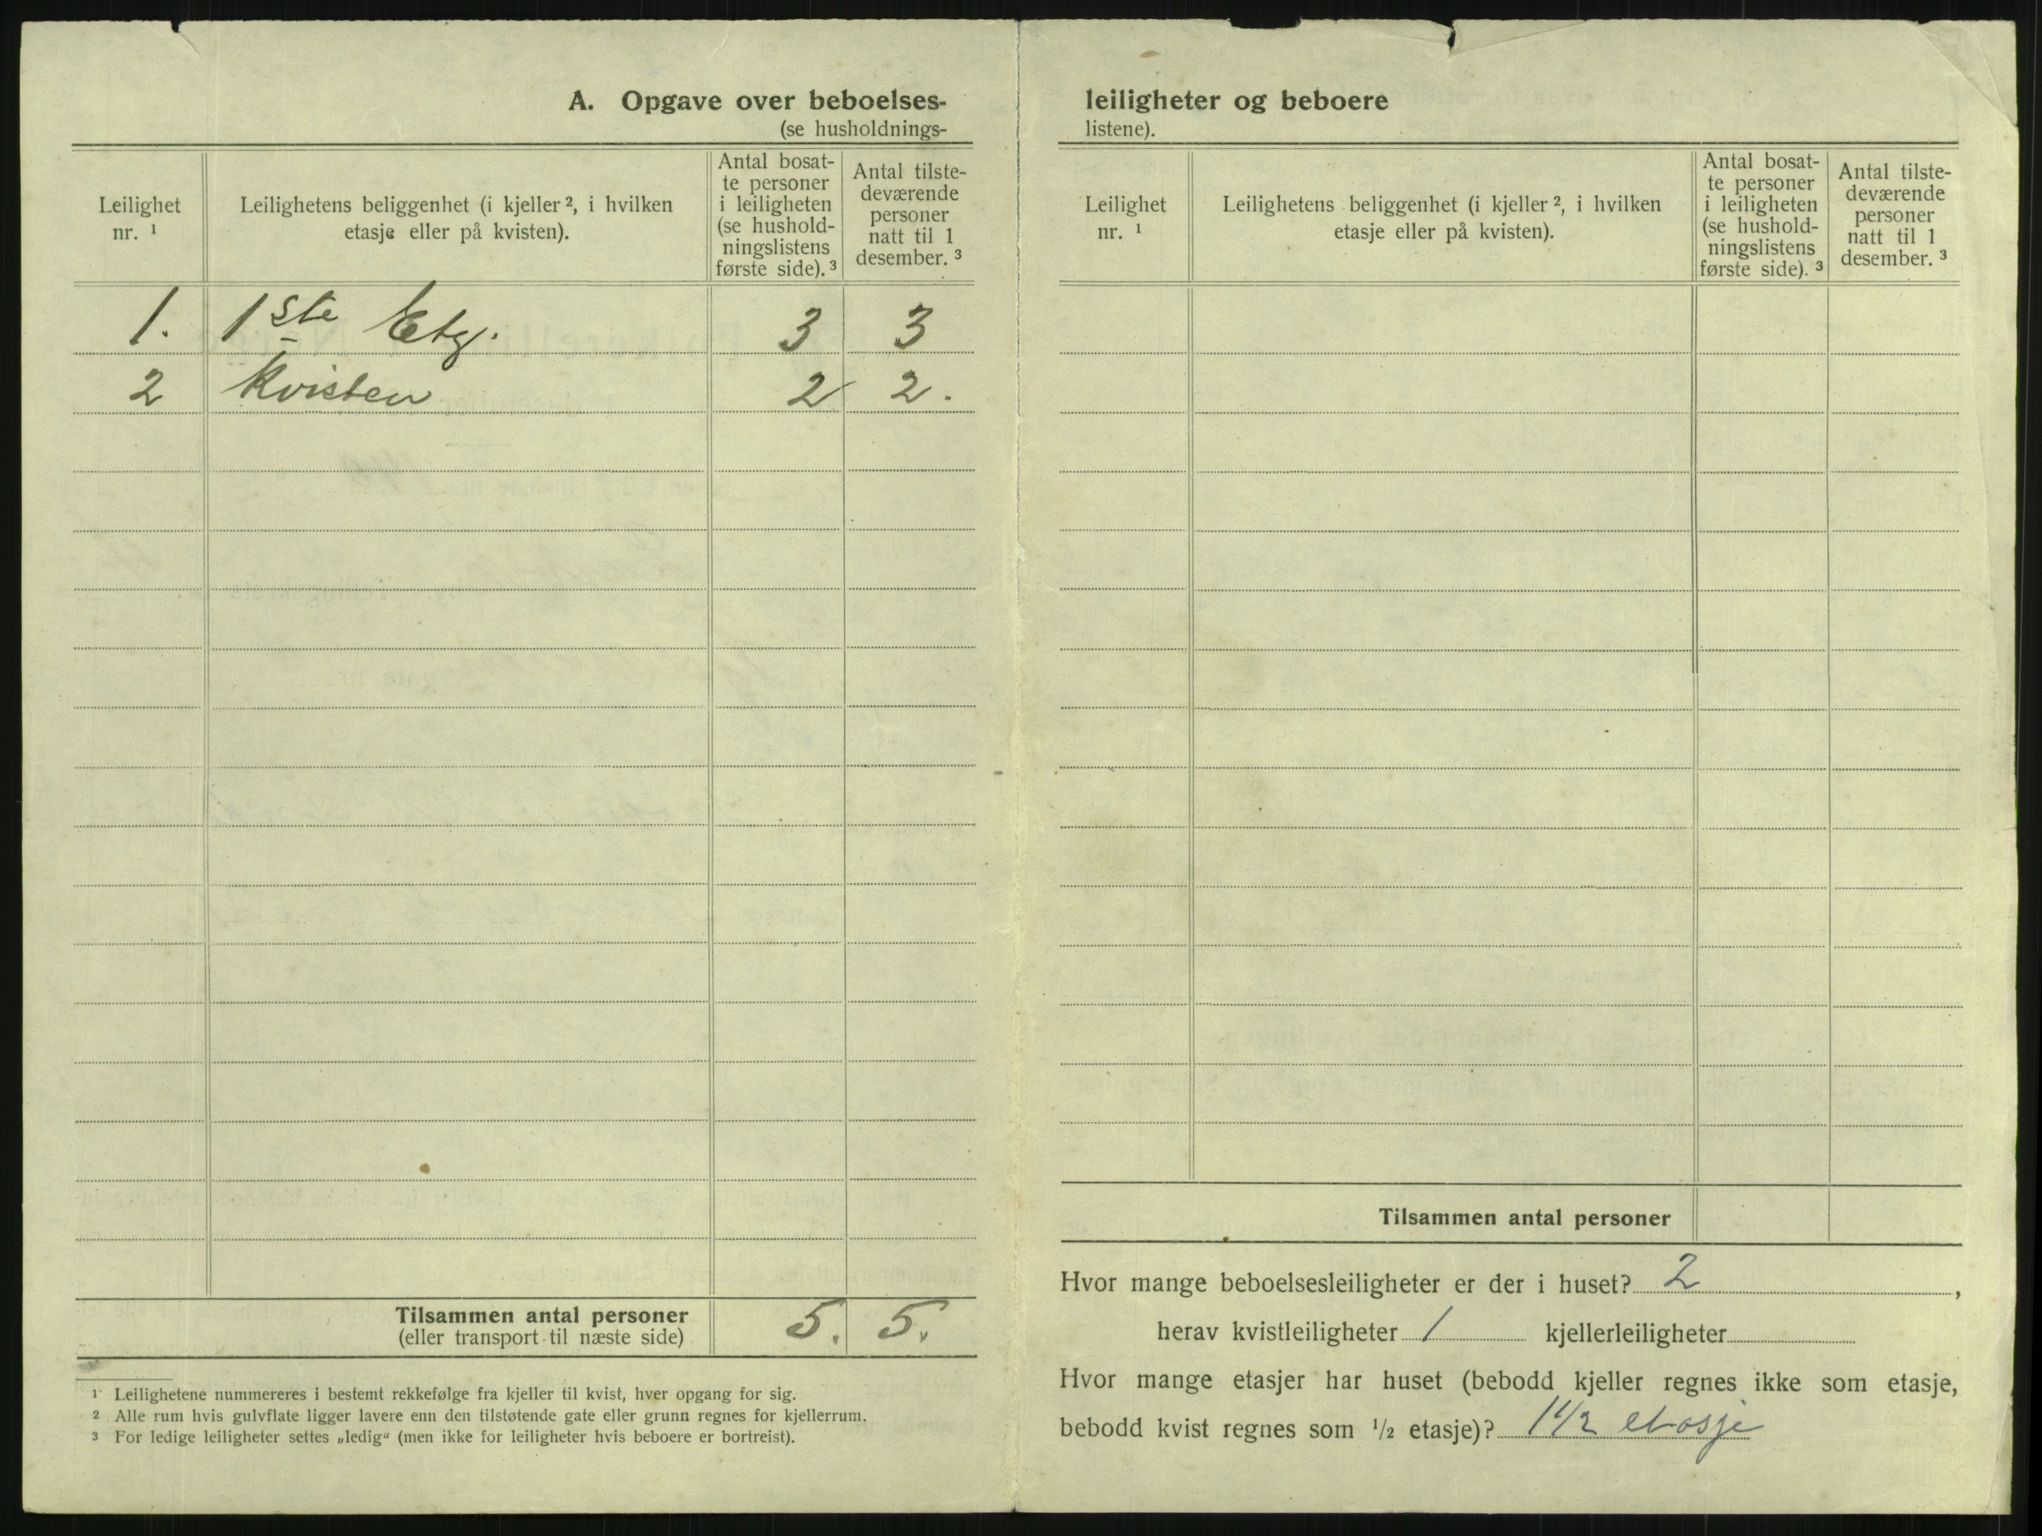 A. Opgave over beboelses-
(se husholdnings-
Leilighet
nr. 1
Leilighetens beliggenhet (i kjeller 2, i hvilken
etasje eller på kvisten).
Antal bosat-
te personer
i leiligheten
(se hushold-
ningslistens
første side). 3
Antal tilste-
deværende
personer
natt til 1
desember. 3
1. 1ste Etg. 3 3
2 Kvisten 2 2.
Tilsammen antal personer 5. 5.
(eller transport til næste side)
1 Leilighetene nummereres i bestemt rekkefølge fra kjeller til kvist, hver opgang for sig.
2 Alle rum hvis gulvflate ligger lavere enn den tilstøtende gate eller grunn regnes for kjellerrum.
3 For ledige leiligheter settes „ledig“ (men ikke for leiligheter hvis beboere er bortreist).
leiligheter og beboere
listene).
Leilighet
nr. 1
Leilighetens beliggenhet (i kjeller 2, i hvilken
etasje eller på kvisten).
Antal bosat-
te personer
i leiligheten
(se hushold-
ningslistens
første side). 3
Antal tilste-
deværende
personer
natt til 1
desember. 3
Tilsammen antal personer
Hvor mange beboelsesleiligheter er der i huset? 2,
herav kvistleiligheter 1 kjellerleiligheter
Hvor mange etasjer har huset (bebodd kjeller regnes ikke som etasje,
bebodd kvist regnes som 1/2 etasje)? 1 1/2 etasje